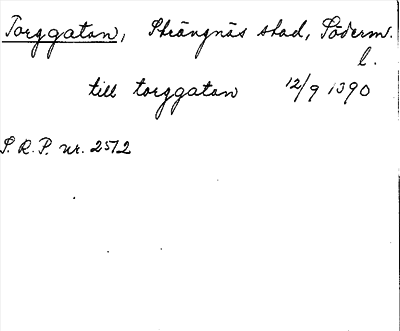 Torggatan, Strängnäs stad, Söderm.
l.
till torggatan 12/9 1390
S.R.P. nr. 2572